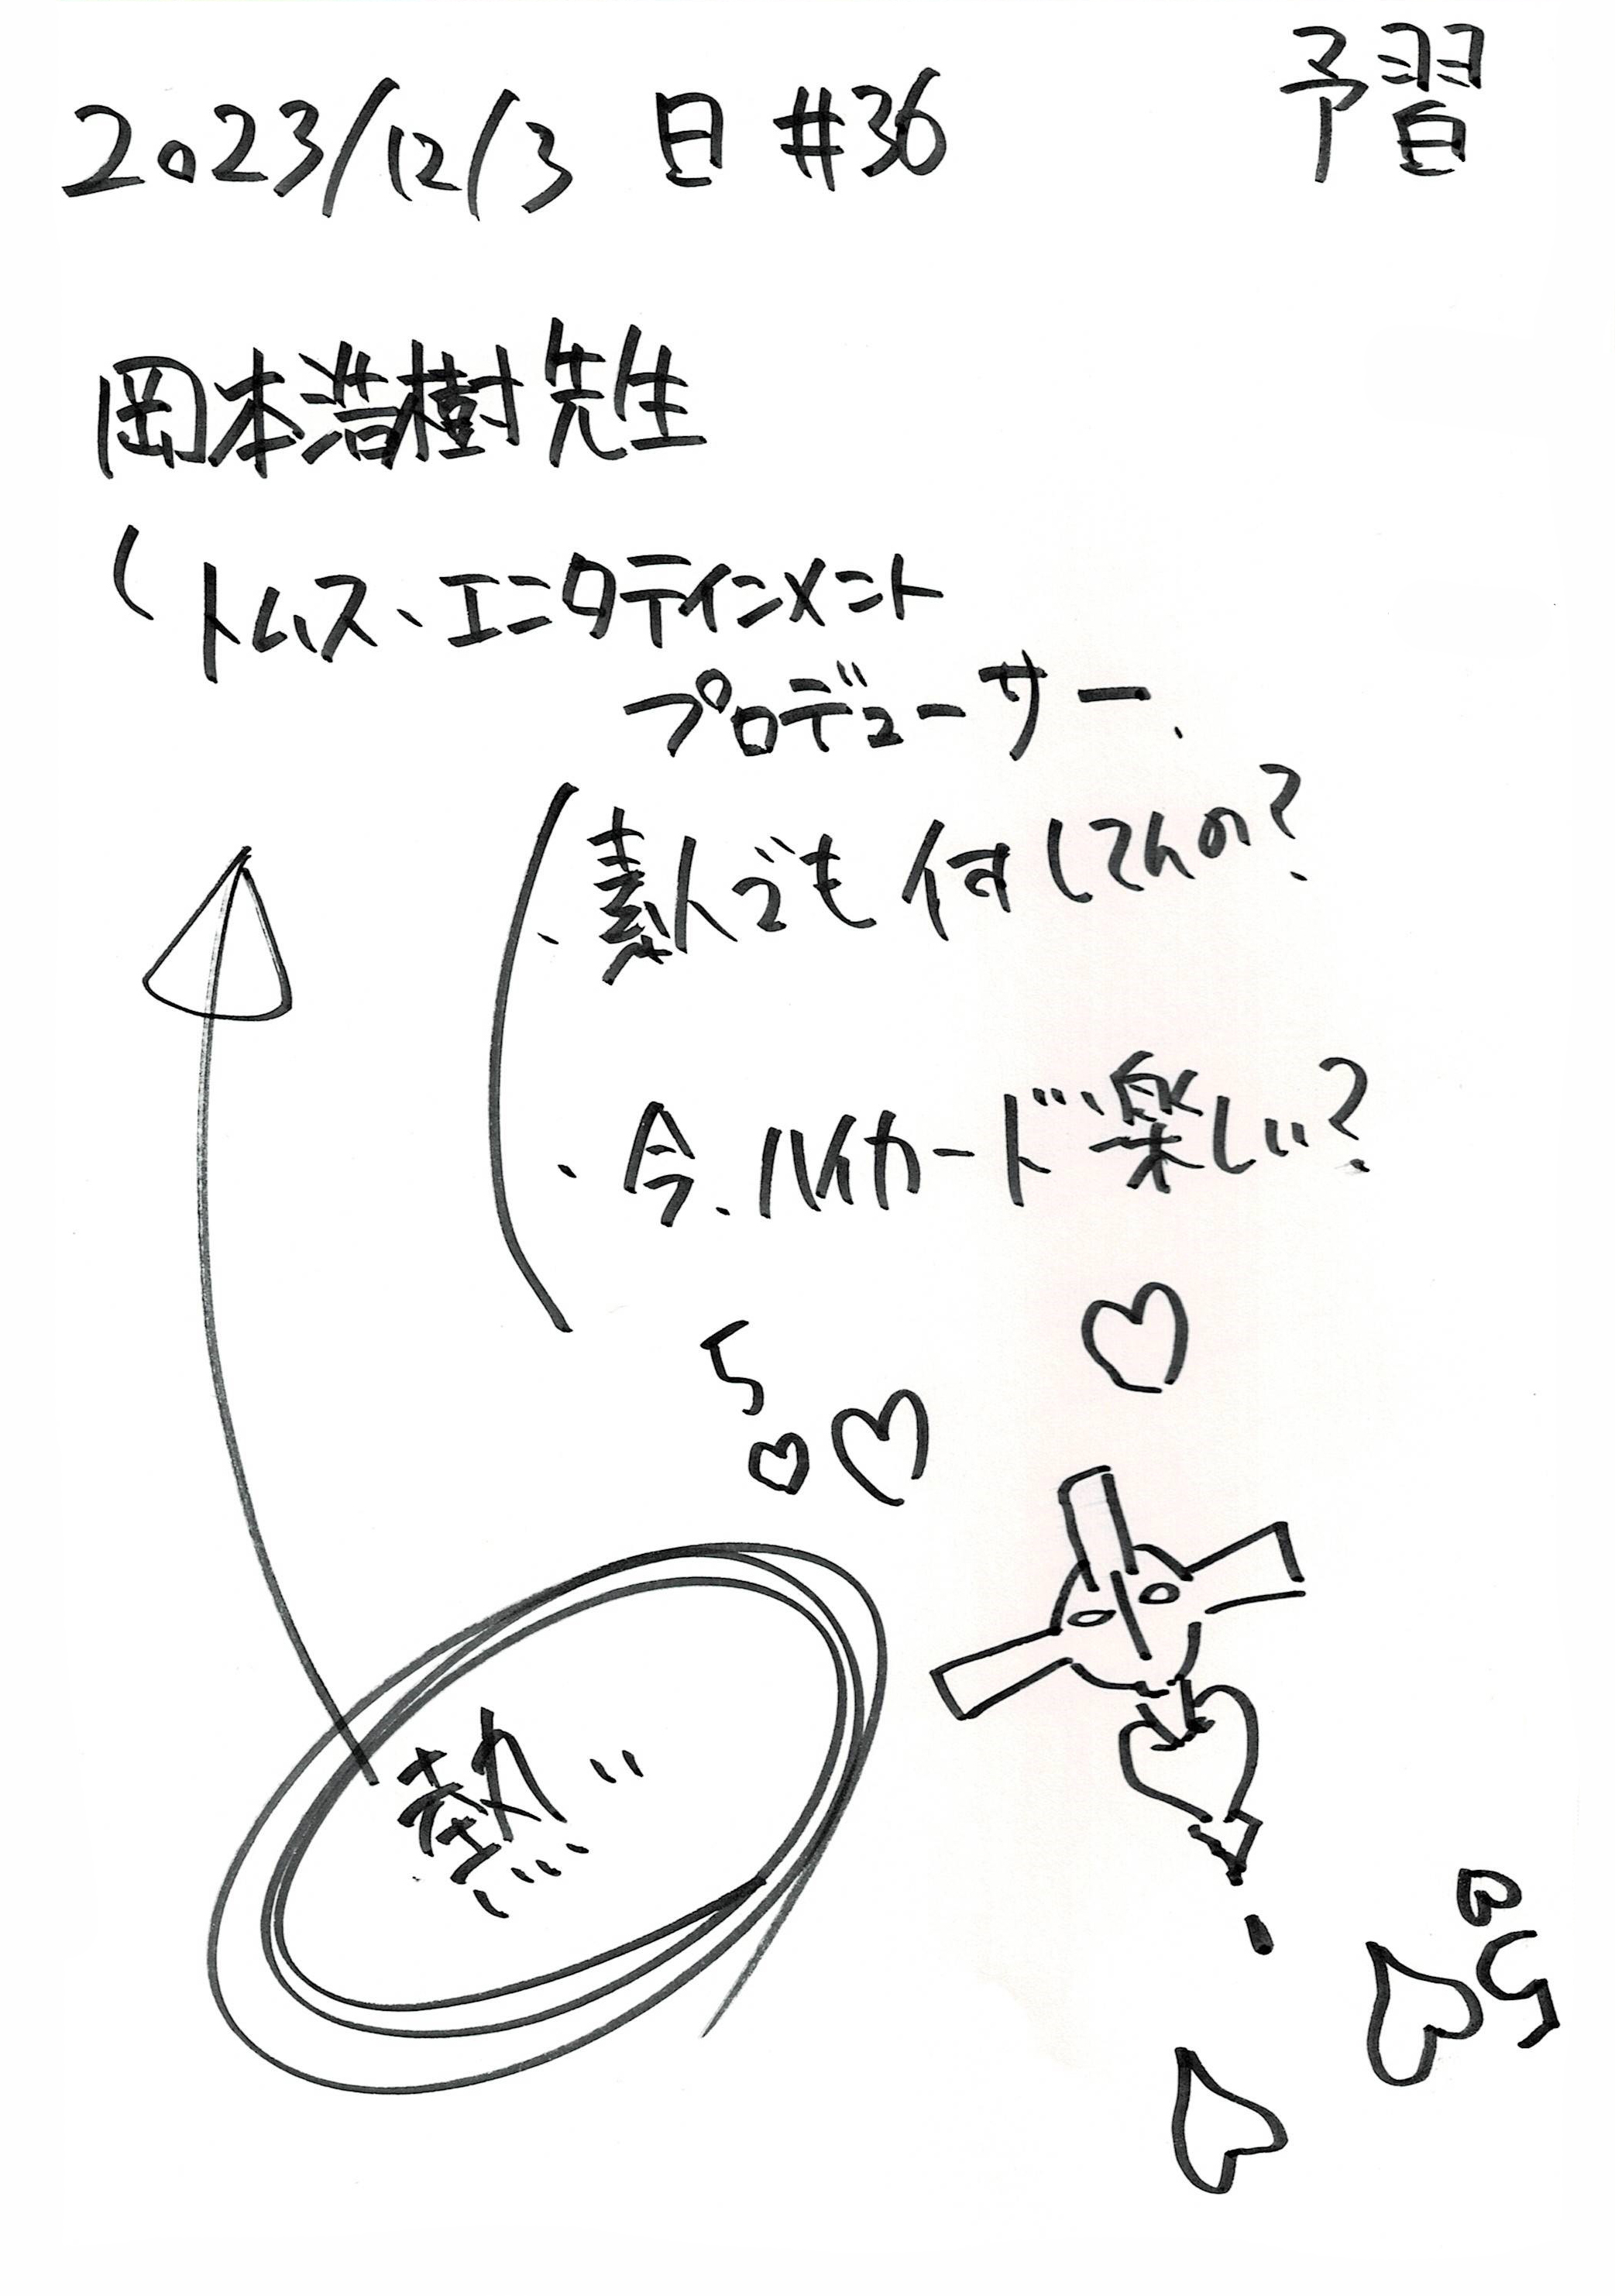 2023/12/3 日 #36
予習
岡本浩樹先生
(トムス、エンタテインメント
プロデューサー、
・素人でも何してんの?
・今、ハイカード楽しい?
5
熱
5